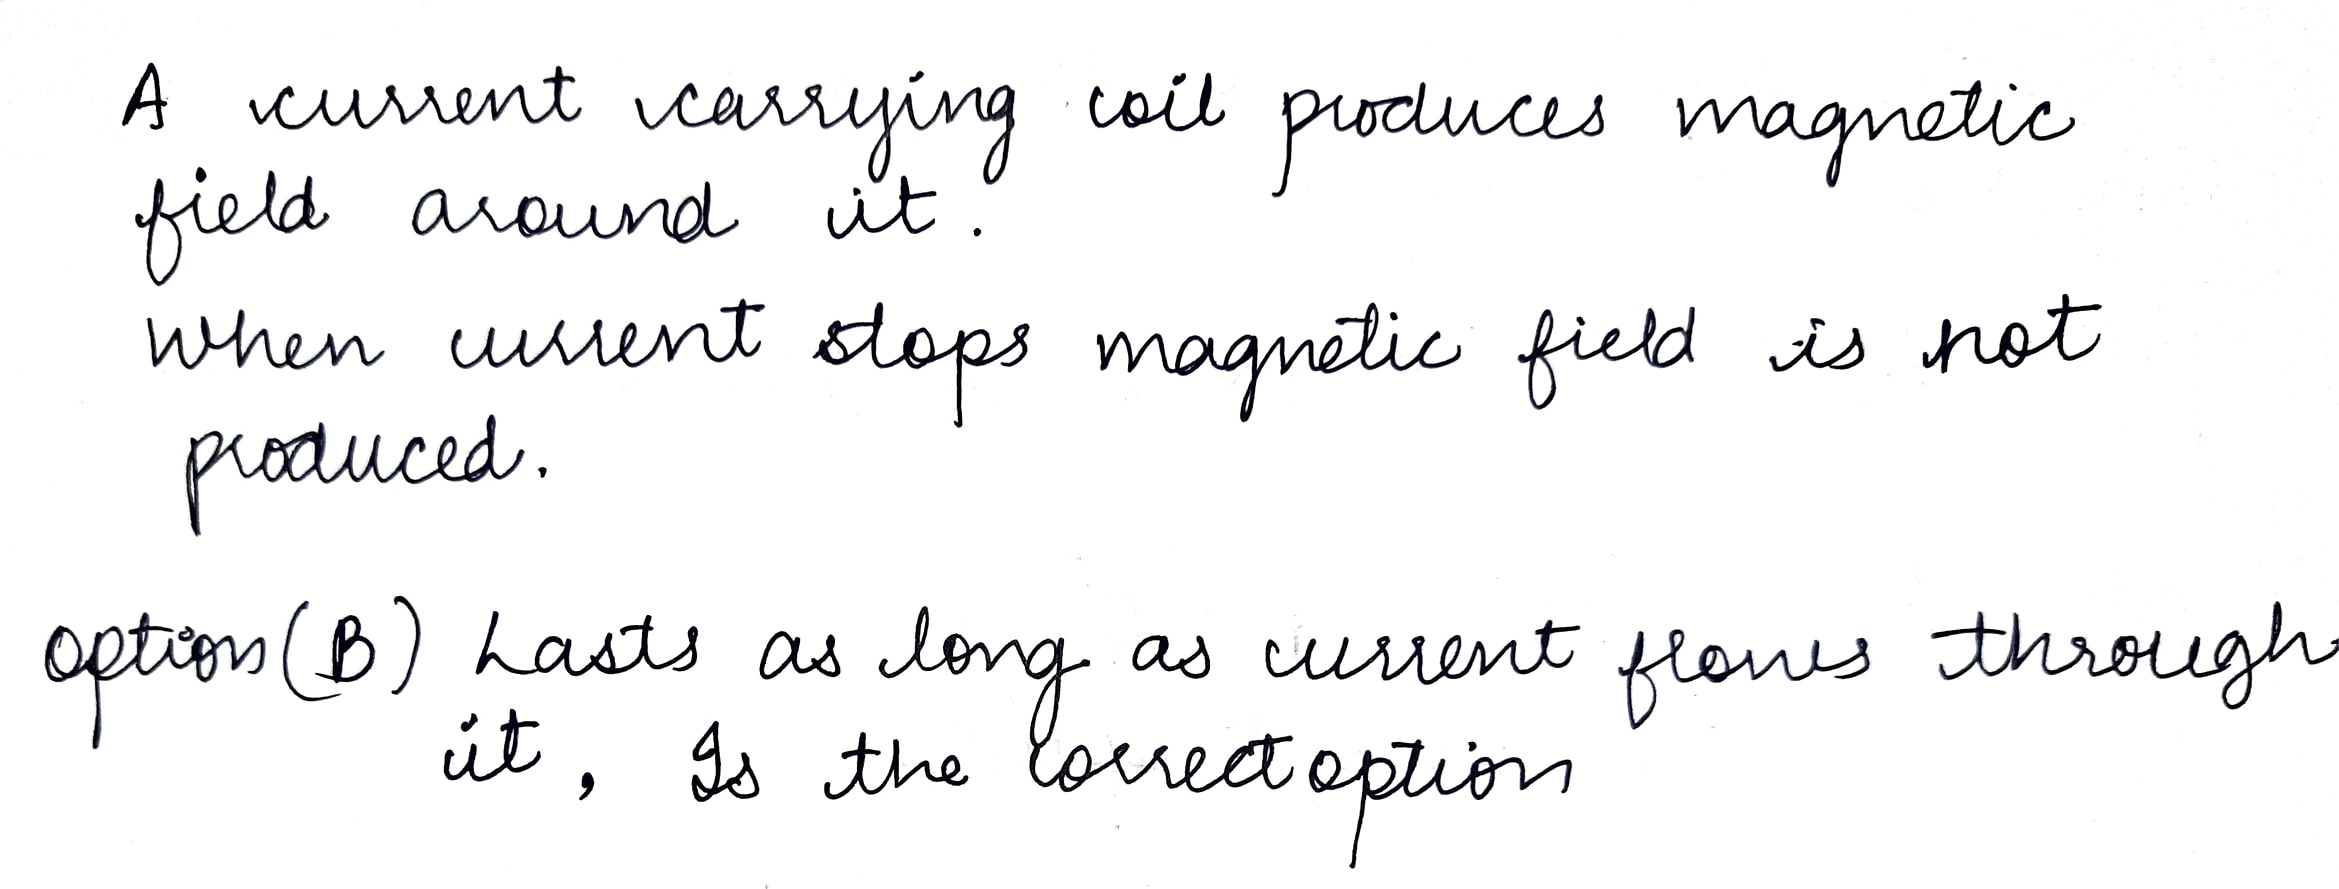 A current carrying coil produces magnetic
field around it.
When current stops magnetic field is not
produced.
option (B) Lasts as long as current flows through
it, Is the correct option